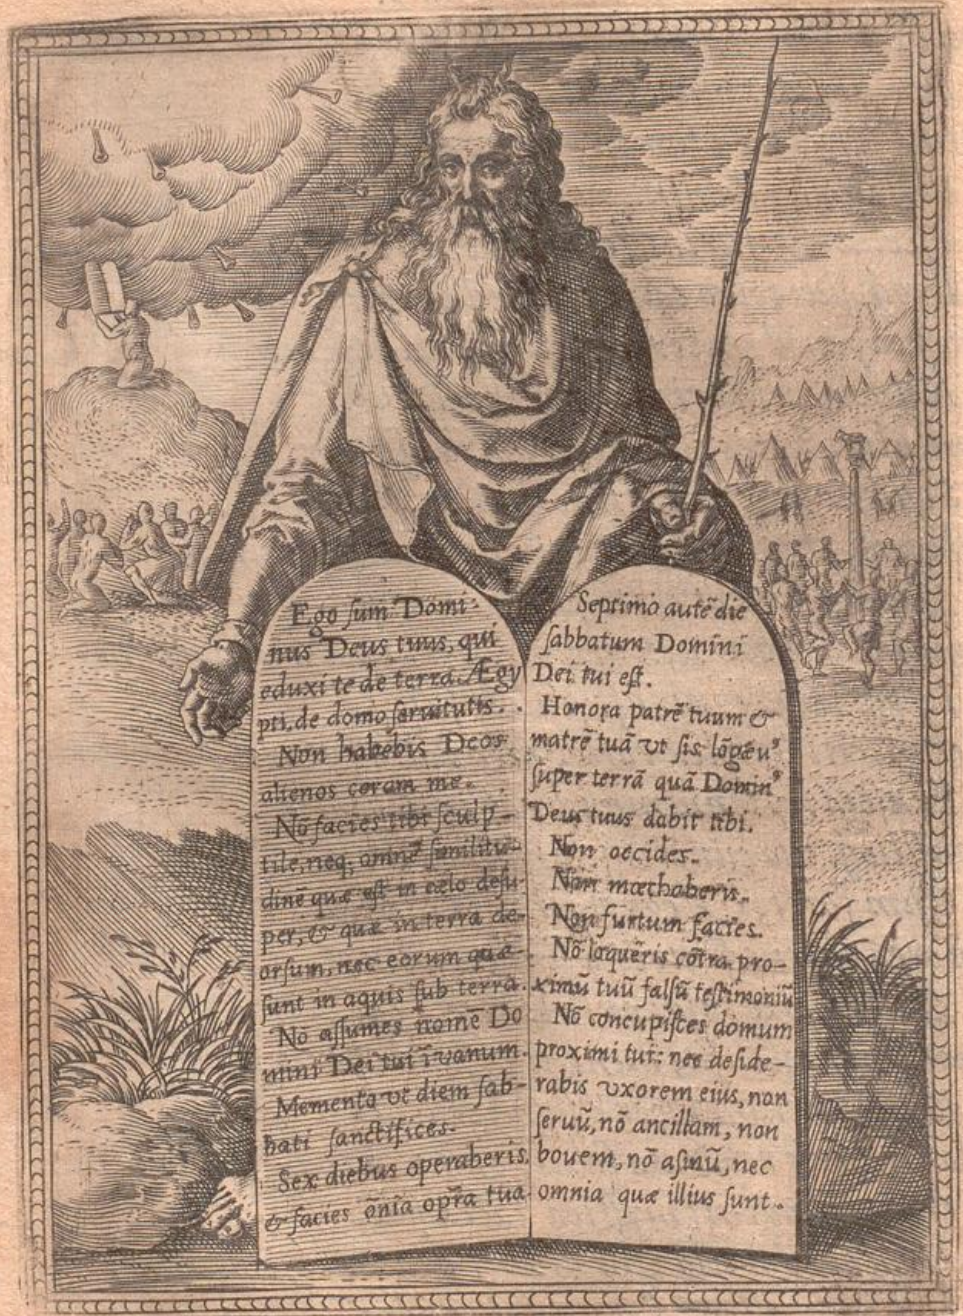 Ego ſum Domi-
nus Deus tuus, qui
eduxi te de terra Ægy
pti, de domo ſeruitutis.
Non habebis Deos
alienos coram me.
Nō facies tibi ſculp-
tile, neq, omnē ſimilitu-
dinē quæ eſt in cœlo deſu-
per, & quæ in terra de-
orſum, nec eorum quæ
ſunt in aquis ſub terra.
No aſſumes nomē Do
mini Dei tui ī vanum.
Memento vt diem ſab-
bati ſanctifices.
Sex diebus operaberis,
& facies ōnia opr̄a tua
Septimo autē die
ſabbatum Domini
Dei tui eſt.
Honora patrē tuum &
matrē tuā vt ſis lōgæuꝰ
ſuper terrā quā Dominꝰ
Deus tuus dabit tibi.
Non occides.
Non mœchaberis.
Non furtum facies.
Nō loquēris cōtra pro-
ximū tuū falſū teſtimoniū
Nō concupiſces domum
proximi tui: nec deſide-
rabis vxorem eius, non
ſeruū, nō ancillam, non
bouem, nō aſinū, nec
omnia quæ illius ſunt.